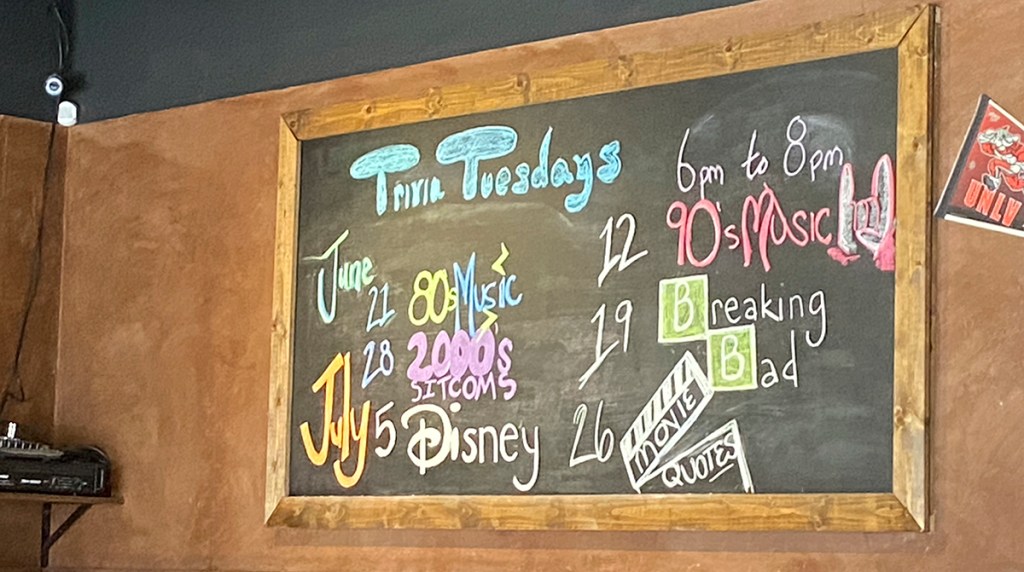 Trivia Tuesdays
6pm to 8pm
June
21 80s Music
28 2000's
SITCOMS
July 5 Disney
12 90's Music
19 Breaking
Bad
26 MOVIE
QUOTES
UNLV